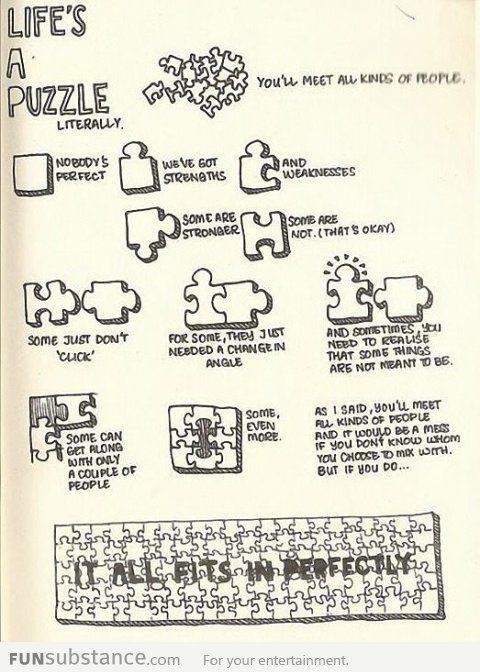 LIFE'S
A
PUZZLE
LITERALLY.
YOU'LL MEET ALL KINDS OF PEOPLE.
NOBODY'S
PERFECT
WE'VE GOT
STRENGTHS
AND
WEAKNESSES
SOME ARE
STRONGER
SOME ARE
NOT. (THAT'S OKAY)
SOME JUST DON'T
'CLICK'
FOR SOME, THEY JUST
NEEDED A CHANGE IN
ANGLE
AND SOMETIMES, YOU
NEED TO REALISE
THAT SOME THINGS
ARE NOT MEANT TO BE.
SOME CAN
GET ALONG
WITH ONLY
A COUPLE OF
PEOPLE
SOME,
EVEN
MORE.
AS I SAID, YOU'LL MEET
ALL KINDS OF PEOPLE
AND IT WOULD BE A MESS
IF YOU DON'T KNOW WHOM
YOU CHOOSE TO MIX WITH.
BUT IF YOU DO...
IT ALL FITS IN PERFECTLY
FUNsubstance.com For your entertainment.